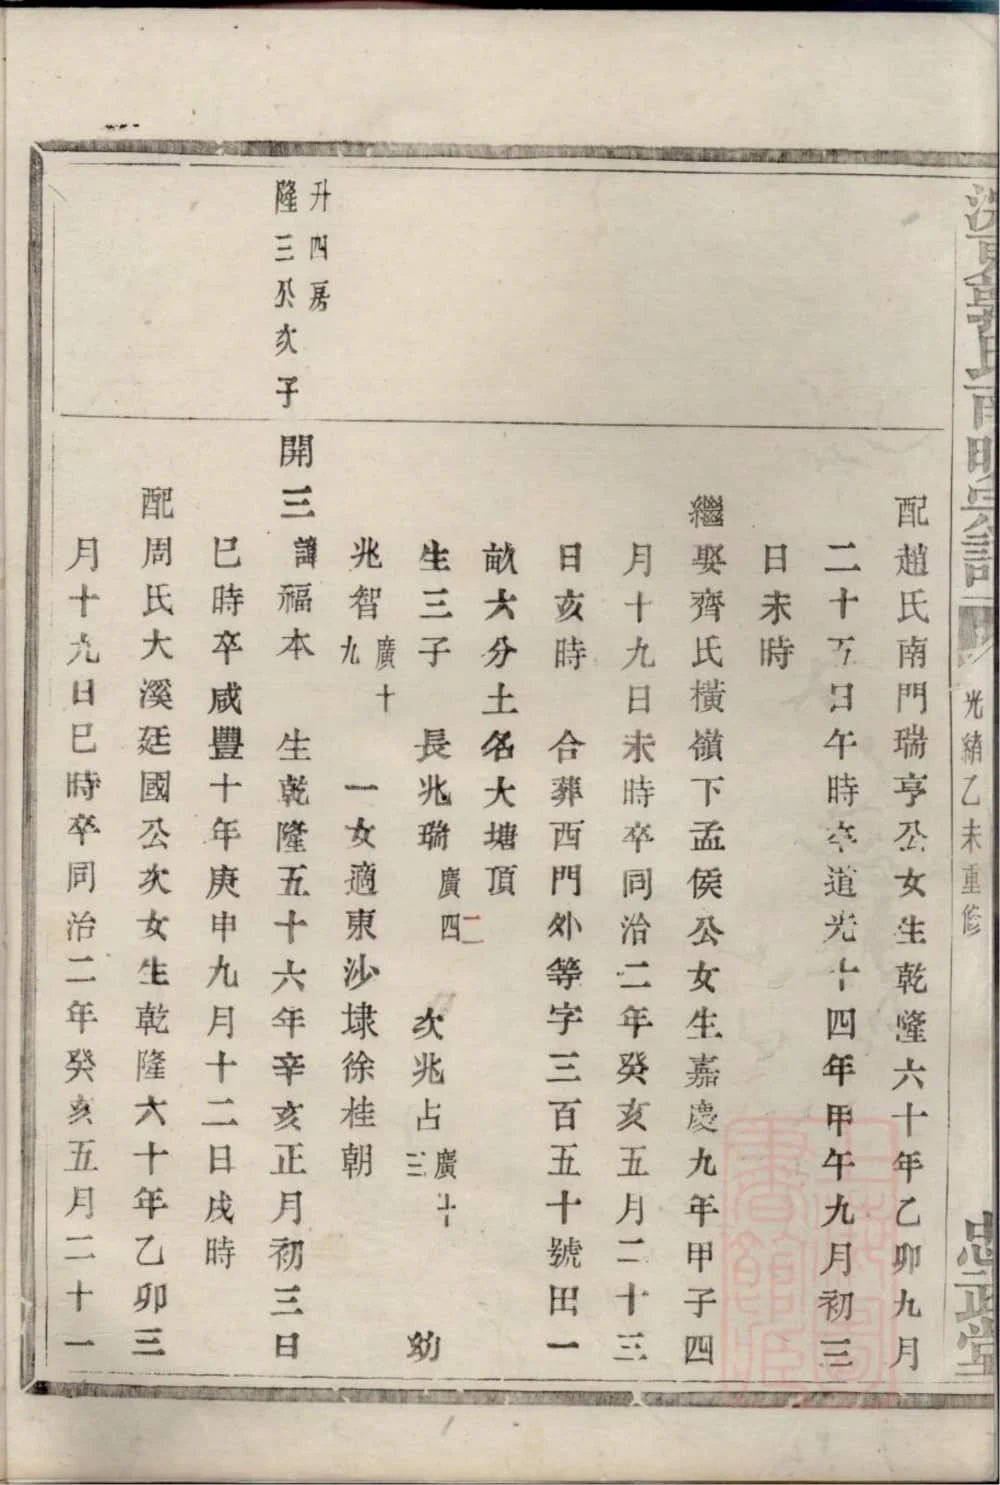 郭氏南明宗譜
光緒乙未重修
忠政堂
配趙氏南門瑞亨公女生乾隆六十年乙卯九月
二十五日午時卒道光十四年甲午九月初三
日未時
繼娶齊氏橫嶺下孟侯公女生嘉慶九年甲子四
月十九日未時卒同治二年癸亥五月二十三
日亥時　合葬西門外等字三百五十號田一
畝六分土名大塘頂
生三子　長兆瑞廣四二　次兆占廣十三　幼
兆智廣十九　一女適東沙埭徐桂朝
升四房
隆三公次子
開三諱福本　生乾隆五十六年辛亥正月初三日
巳時卒咸豐十年庚申九月十二日戌時
配周氏大溪廷國公次女生乾隆六十年乙卯三
月十九日巳時卒同治二年癸亥五月二十一